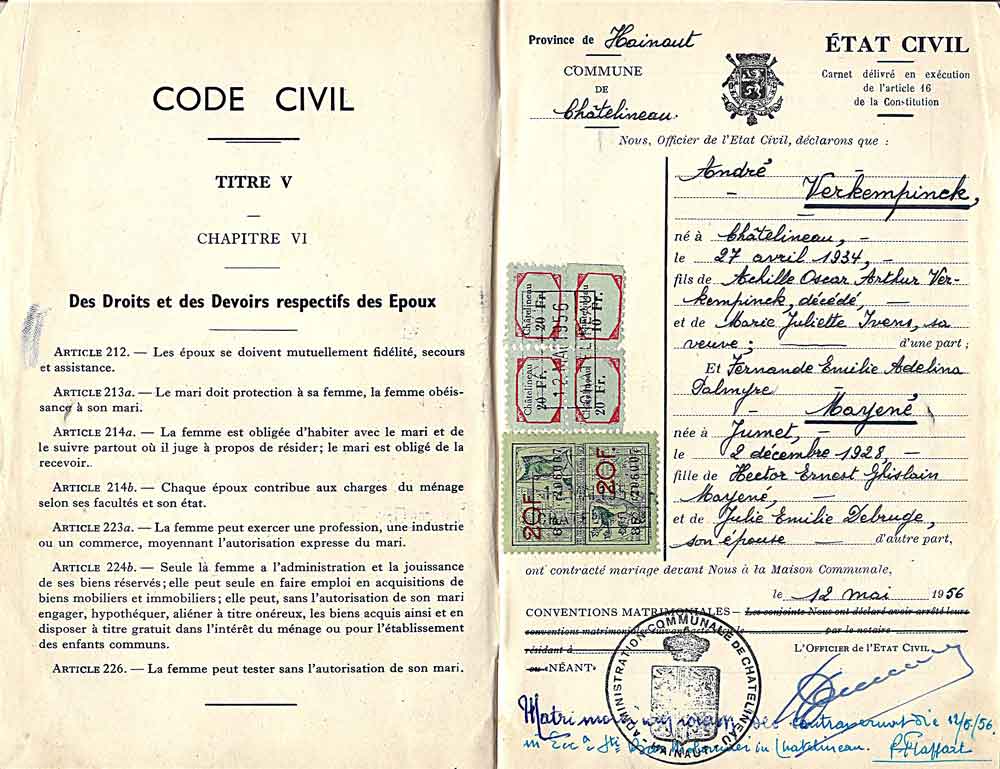 CODE CIVIL
TITRE V
CHAPITRE VI
Des Droits et des Devoirs respectifs des Epoux
ARTICLE 212. — Les époux se doivent mutuellement fidélité, secours
et assistance.
ARTICLE 213a. — Le mari doit protection à sa femme, la femme obéis-
sance à son mari.
ARTICLE 214a. — La femme est obligée d'habiter avec le mari et de
le suivre partout où il juge à propos de résider; le mari est obligé de la
recevoir..
ARTICLE 214b. — Chaque époux contribue aux charges du ménage
selon ses facultés et son état.
ARTICLE 223a. — La femme peut exercer une profession, une industrie
ou un commerce, moyennant l'autorisation expresse du mari.
ARTICLE 224b. — Seule la femme a l'administration et la jouissance
de ses biens réservés; elle peut seule en faire emploi en acquisitions de
biens mobiliers et immobiliers; elle peut, sans l'autorisation de son mari
engager, hypothéquer, aliéner à titre onéreux, les biens acquis ainsi et en
disposer à titre gratuit dans l'intérêt du ménage ou pour l'établissement
des enfants communs.
ARTICLE 226. — La femme peut tester sans l'autorisation de son mari.
Province de Hainaut
COMMUNE
DE
Châtelineau.
ÉTAT CIVIL
Carnet délivré en exécution
de l'article 16
de la Constitution
Nous, Officier de l'Etat Civil, déclarons que :
André
Verkempinck,
né à Châtelineau, —
le 27 avril 1934, —
fils de Achille Oscar Arthur Ver-
kempinck, décédé, —
et de Marie Juliette Ivens, sa
veuve; — d'une part;
Et Fernande Emilie Adelina
Palmyre —
Mayené
née à Jumet, —
le 2 décembre 1928, —
fille de Hector Ernest Ghislain
Mayené, —
et de Julie Emilie Debruge,
son épouse — d'autre part,
ont contracté mariage devant Nous à la Maison Communale,
le 12 mai 1956
CONVENTIONS MATRIMONIALES — Les conjoints Nous ont déclaré avoir arrêté leurs
conventions matrimoniales suivant acte le par le notaire
résidant à
ou «NÉANT»
L'OFFICIER DE L'ETAT CIVIL
Châtelineau
20 Fr.
10 Fr.
Châtelineau
20 Fr.
20 Fr.
12 MAI 1956
20F
20F
ADMINISTRATION COMMUNALE DE CHATELINEAU
HAINAUT
die 12/5/56.
in Châtelineau.